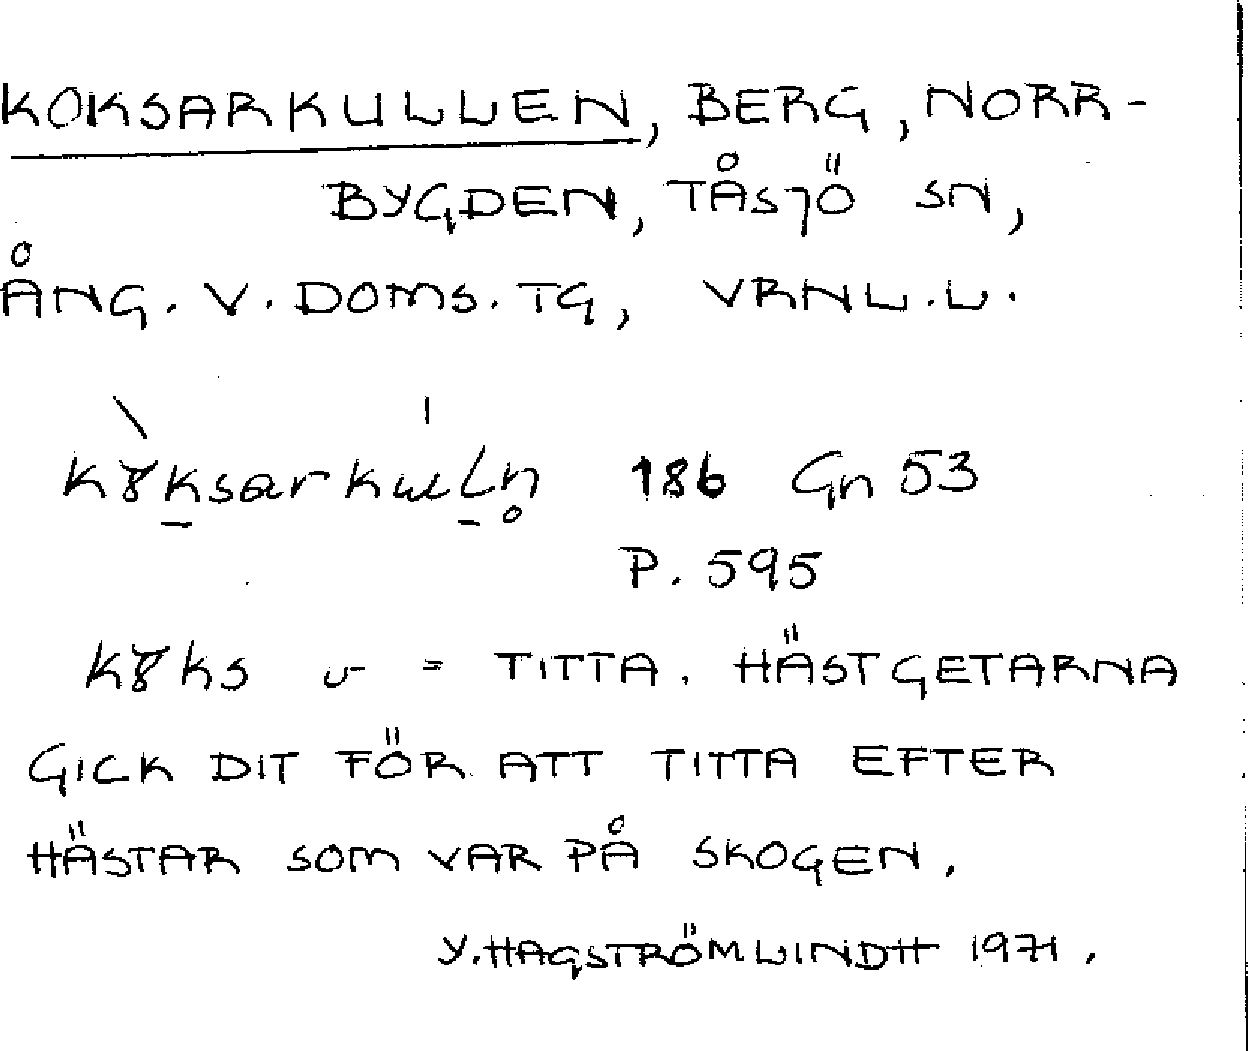 KOKSARKULLEN, BERG, NORR-
BYGDEN, TÅSJÖ SN,
ÅNG. V. DOMS. TG, VRNL.L.
186 Gn 53
P. 595
v = TITTA. HÄSTGETARNA
GICK DIT FÖR ATT TITTA EFTER
HÄSTAR SOM VAR PÅ SKOGEN.
Y. HAGSTRÖM LINDH 1971.